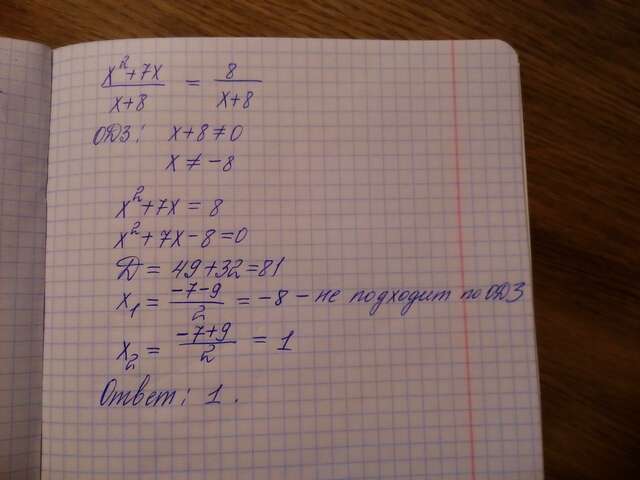 x²+7x / x+8 = 8 / x+8
ОДЗ: x+8≠0
x≠-8
x²+7x=8
x²+7x-8=0
D=49+32=81
x₁=-7-9/2=-8-не подходит по ОДЗ
x₂=-7+9/2=1
Ответ: 1.